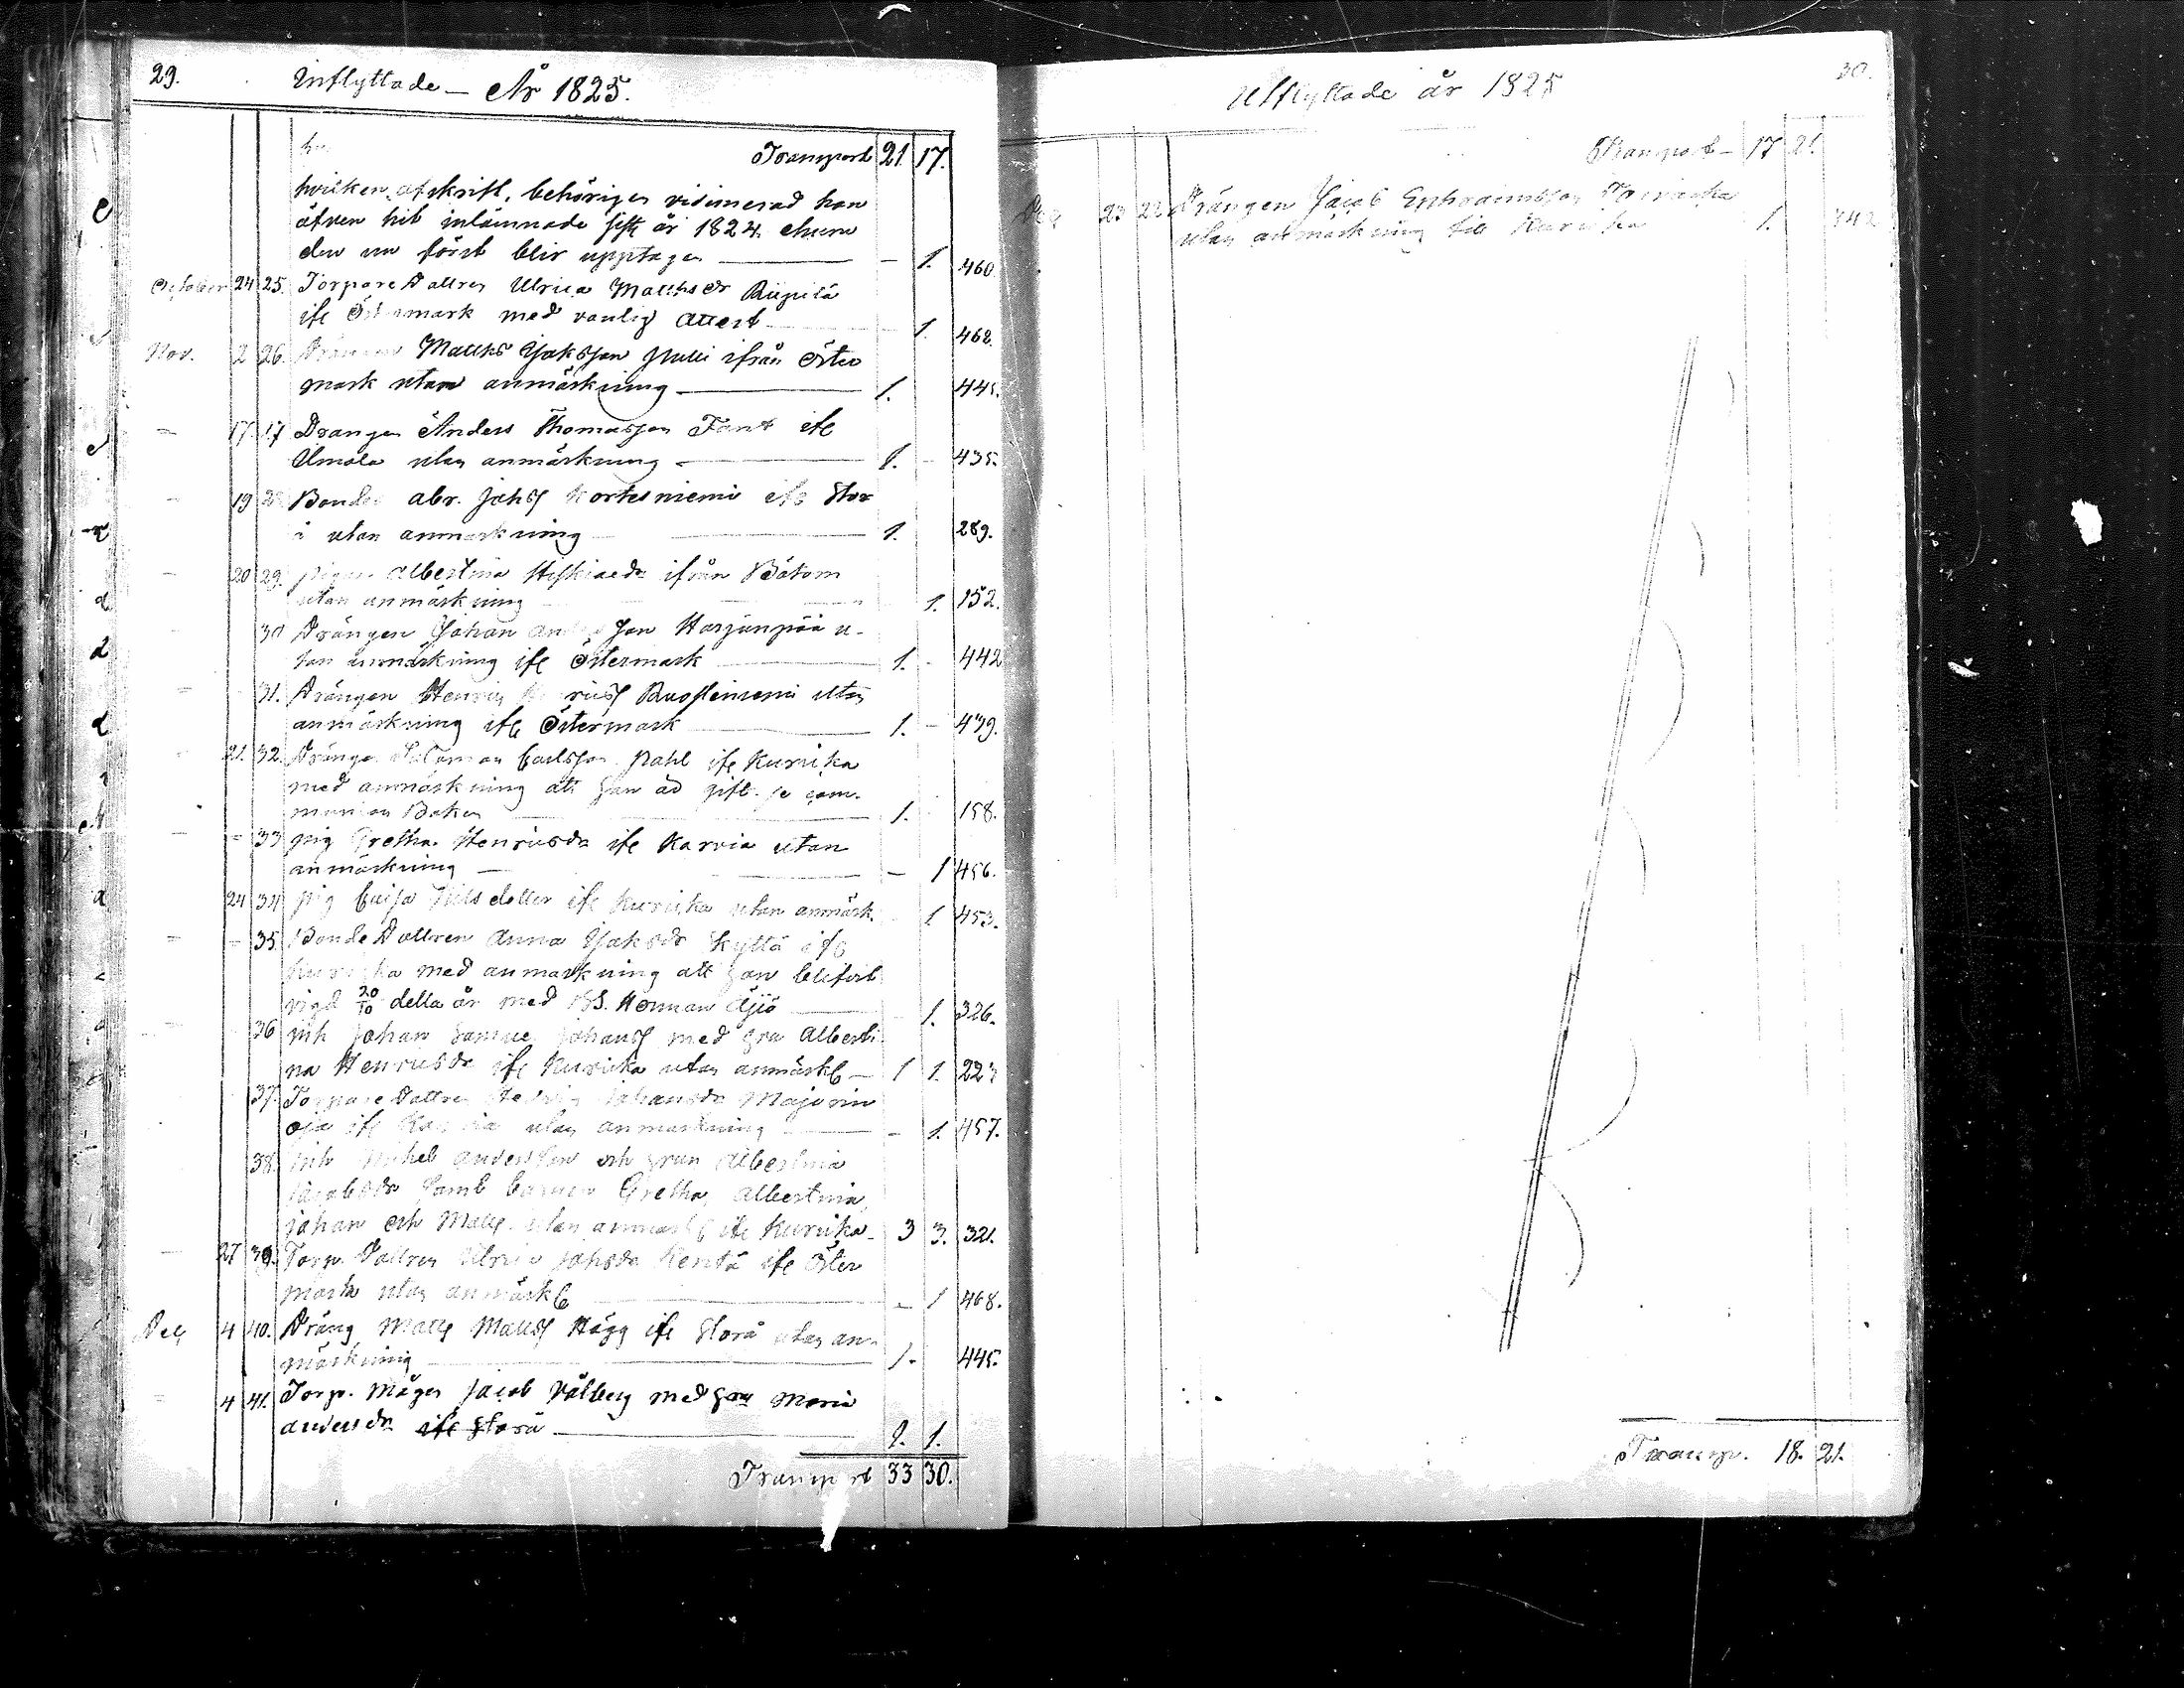 29. Inflyttade — År 1825.
Transport 21 17.
hvilken afskrift, behörigen vidimerad han
äfven hit inlämnade sistl. år 1824. ehuru
den nu först blir upptagen — 1. 460.
October 24 25. Torpare Dattren Ulrica Matthsdr
ifr Östermark med vanlig attest 1. 468.
Nov. 2 26. Drängen Matths Jakssson ifrån Öster
mark utan anmärkning 1. 445.
17 17 Drängen Anders Thomasson ifr
Ilmola utan anmärkning 1. 435.
19 Bonden abr. Jahss Kortesniemi ifr Stor
å utan anmärkning 1. 289.
20 29. pigan Albertina ifrån Bötom
utan anmärkning 1. 152.
30 Drängen Johan Andersson Harjunpää u-
tan anmärkning ifr Östermark 1. 442
31. Drängen Henric utan
anmärkning ifr Östermark 1. 439.
21. 32. Drängen Salomon Carlsson ifr Kurvika
med anmärkning att han är gift. se com-
munion Boken 1. 158.
33 pig Gretha Henricsdr ifr Karvia utan
anmärkning — 1 456.
24 34 pig Caisa Nilsdotter ifr Kurvika utan anmärk. 1 453.
35. Bonde Dattren Anna Jaksdr Skyttä ifr
Kurvika med anmärkning att hon blifvit
vigd 20/10 detta år med Herman Äijö 1. 326.
36 inh Johan Johanss med hu Alberti
na Henricsdr ifr Kurvika utan anmärk 1 1. 223
37. Torpare Dattren Johansdr
oja ifr Karvia utan anmärkning — 1. 457.
38. inh Michel Andersson och hrun Albertina
Jacobsdr samt barnen Gretha, Albertina,
Johan och Matts utan anmärk ifr Kurvika 3 3. 321.
27 39. Torp. Dattren Ulrica Johsdr Kentä ifr Öster
mark utan anmärk — 1 468.
Dec 4 40. Dräng Matts Mattss Hägg ifr Storå utan an-
märkning 1. 445.
4 41. Torp. Mågen Jacob Vålberg med hu Maria
Andersdr ifr Storå 1. 1.
Transport 33 30.
30.
Utflyttade år 1825
Transport — 17 21.
Dec 23 22 Drängen Jacob Ephraimsson
utan anmärkning till Kurvika 1. 342
Transp. 18. 21.